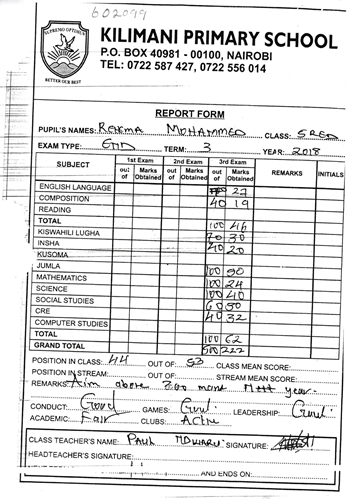 602099
SUPREMO OPTIMUS
BETTER OUR BEST
KILIMANI PRIMARY SCHOOL
P.O. BOX 40981 - 00100, NAIROBI
TEL: 0722 587 427, 0722 556 014
REPORT FORM
PUPIL'S NAMES: REHEMA MOHAMMED CLASS: 5 RED
EXAM TYPE: END TERM: 3 YEAR: 2018
SUBJECT 1st Exam 2nd Exam 3rd Exam REMARKS INITIALS
out of Marks Obtained out of Marks Obtained out of Marks Obtained
ENGLISH LANGUAGE 27
COMPOSITION 40 19
READING
TOTAL 100 46
KISWAHILI LUGHA 70 30
INSHA 40 20
KUSOMA
JUMLA 100 50
MATHEMATICS 100 24
SCIENCE 100 40
SOCIAL STUDIES 60 30
CRE 40 32
COMPUTER STUDIES
TOTAL 100 62
GRAND TOTAL 500 222
POSITION IN CLASS: 44 OUT OF: 53 CLASS MEAN SCORE:
POSITION IN STREAM: OUT OF: STREAM MEAN SCORE:
REMARKS: Aim above 200 marks Next year.
CONDUCT: Good GAMES: Good LEADERSHIP: Good
ACADEMIC: Fair CLUBS: Active
CLASS TEACHER'S NAME: PAUL SIGNATURE:
HEADTEACHER'S SIGNATURE:
AND ENDS ON: